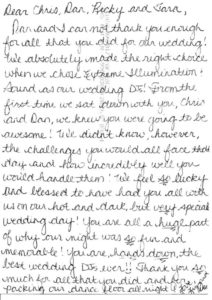 Dear Chris, Dan, Becky and Tara,
Dan and I can not thank you enough
for all that you did for our wedding!
We absolutely made the right choice
when we chose Extreme Illumination &
Sound as our wedding DJs! From the
first time we sat down with you, Chris
and Dan, we knew you were going to be
awesome! We didn't know, however,
the challenges you would all face that
day and how incredibly well you
would handle them! We feel so lucky
and blessed to have had you all with
us on our hot and dark, but very special
wedding day! You are all a huge part
of why our night was so fun and
memorable! You are, hands down, the
best wedding DJs ever!! Thank you so
much for all that you did and for
packing our dance floor all night!